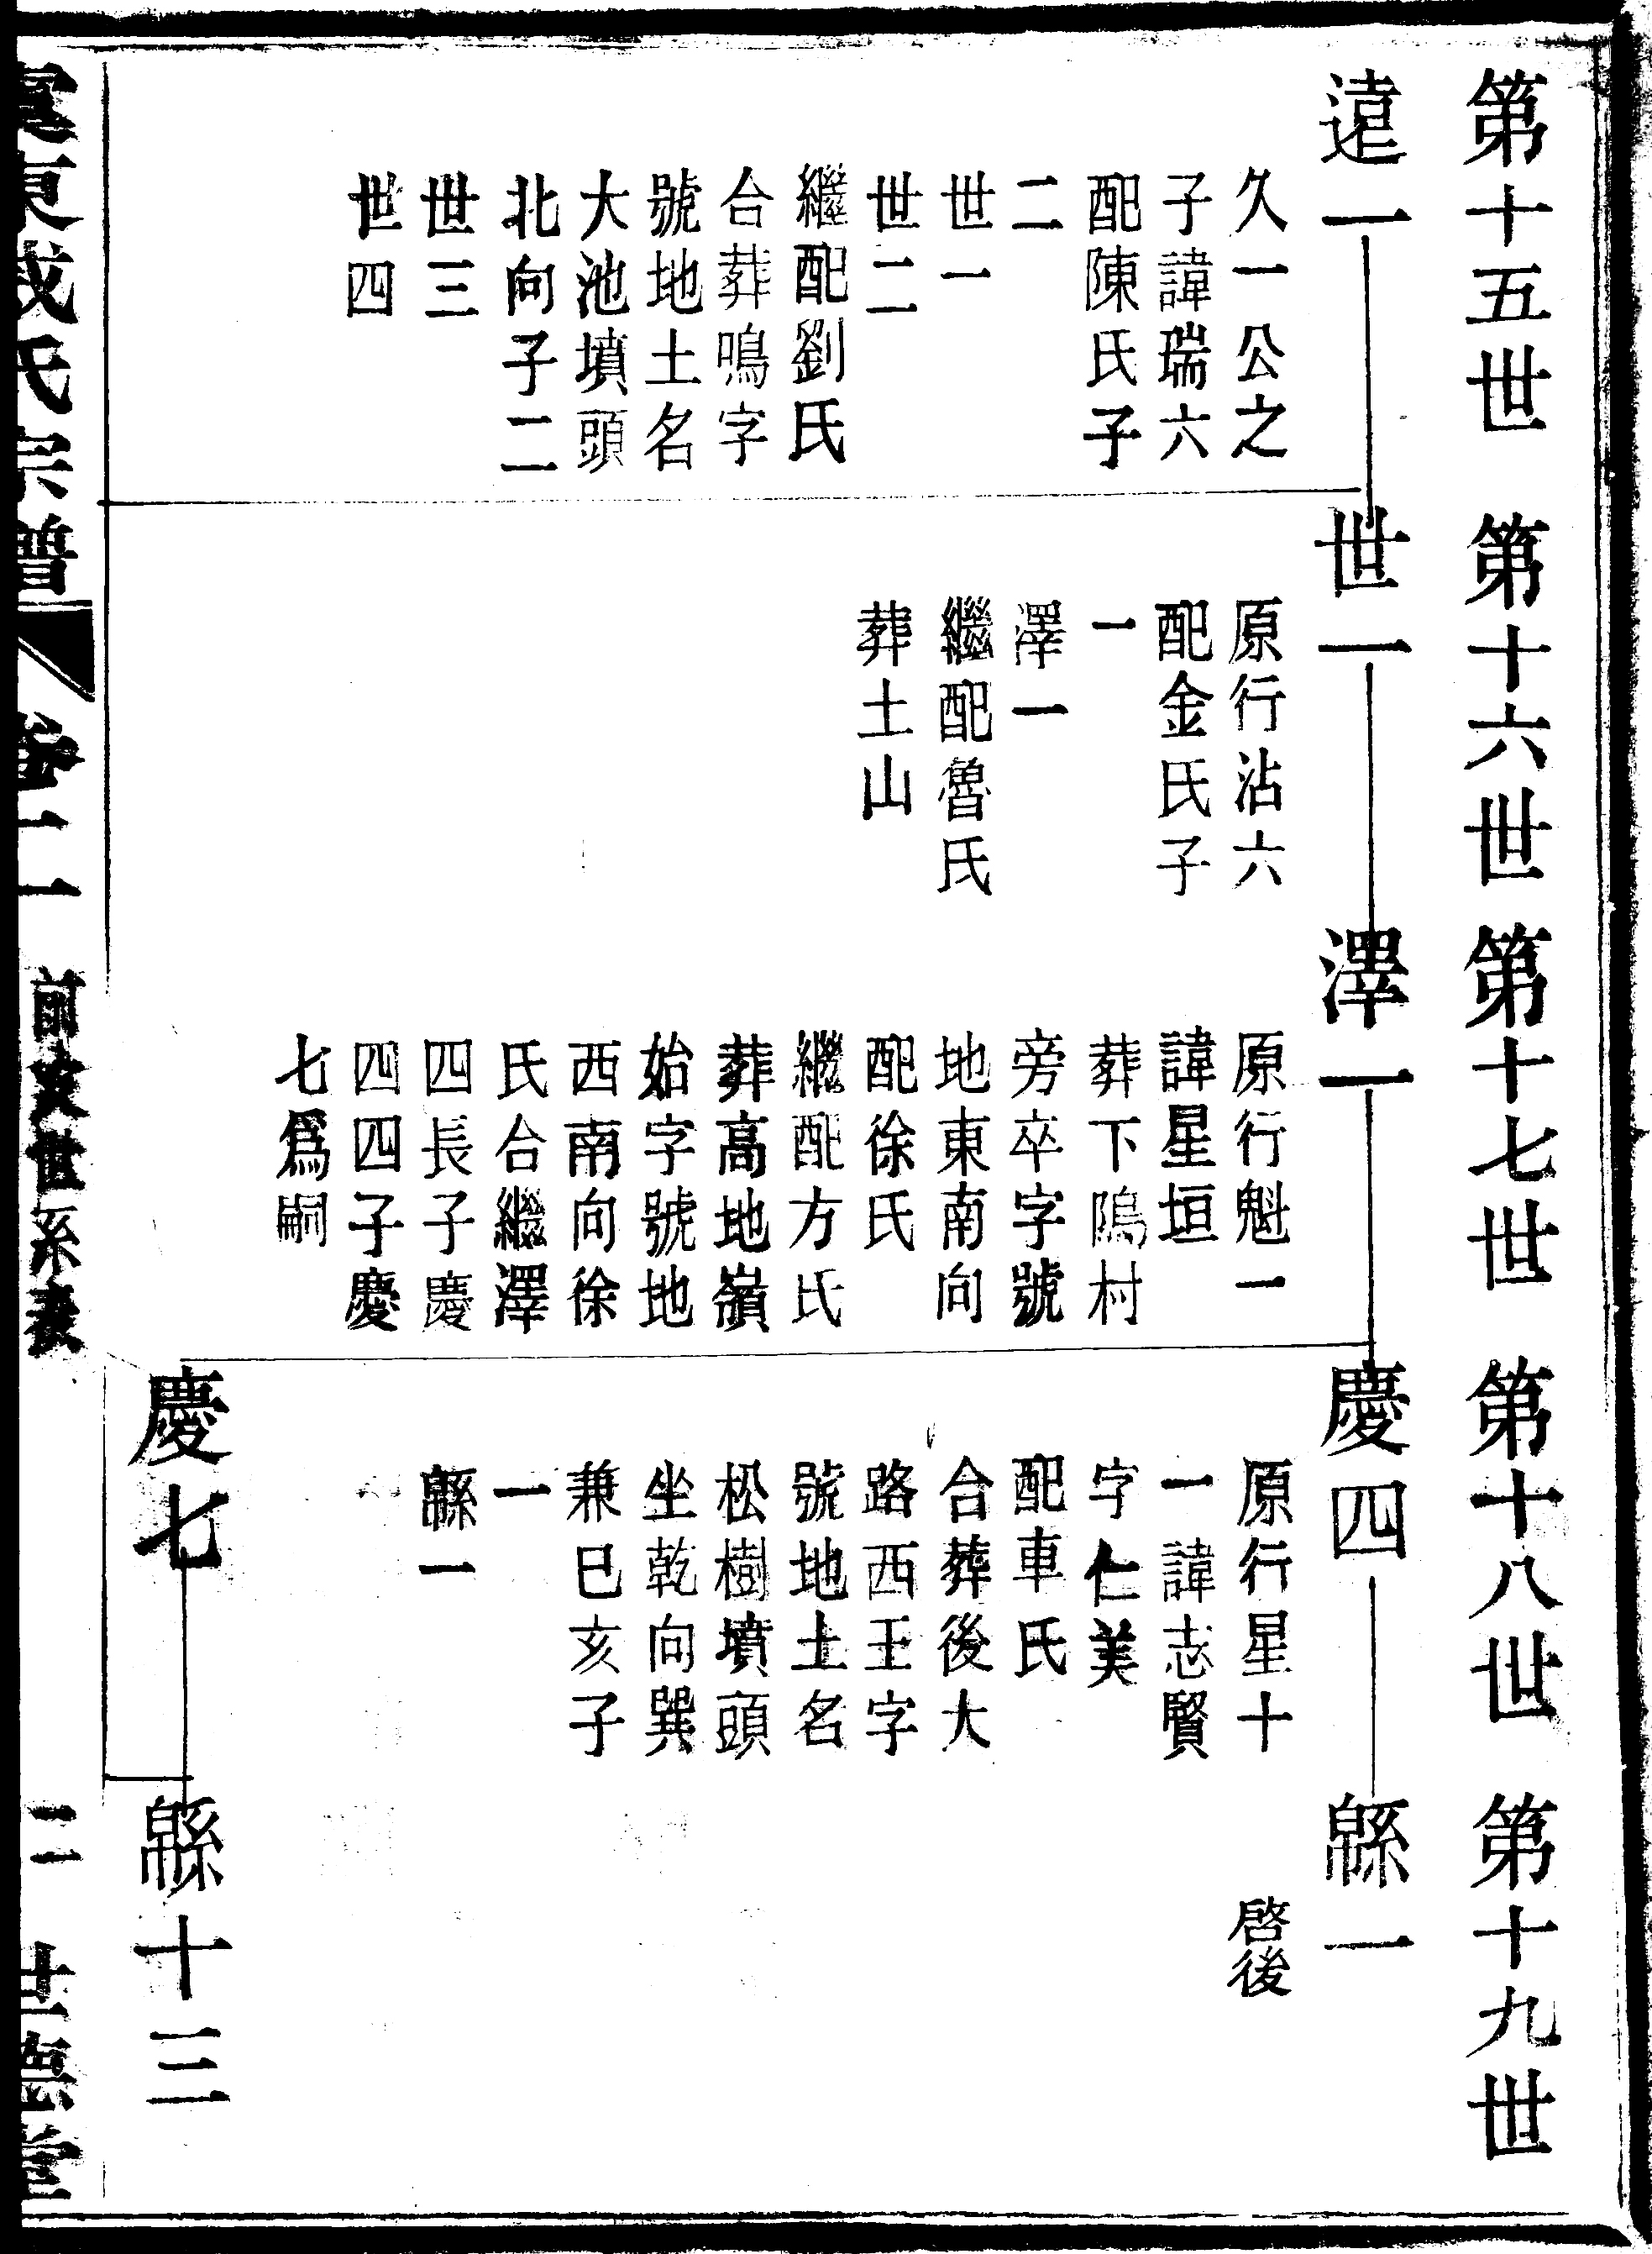 第十五世
第十六世
第十七世
第十八世
第十九世
遠一
久一公之
子諱瑞六
配陳氏子
二
世一
世二
繼配劉氏
合葬鳴字
號地土名
大池墳頭
北向子二
世三
世四
世一
原行沾六
配金氏子
一
澤一
繼配魯氏
葬土山
澤一
原行魁一
諱星垣
葬下隖村
旁卒字號
地東南向
配徐氏
繼配方氏
葬高地嶺
始字號地
西南向徐
氏合繼澤
四長子慶
四四子慶
七爲嗣
慶四
原行星十
一諱志賢
字仁美
配車氏
合葬後大
路西王字
號地土名
松樹墳頭
坐乾向巽
兼巳亥子
一
緜一
緜一
啓後
慶七
緜十三
東 氏宗譜
卷二
前 世系表
二
世德堂